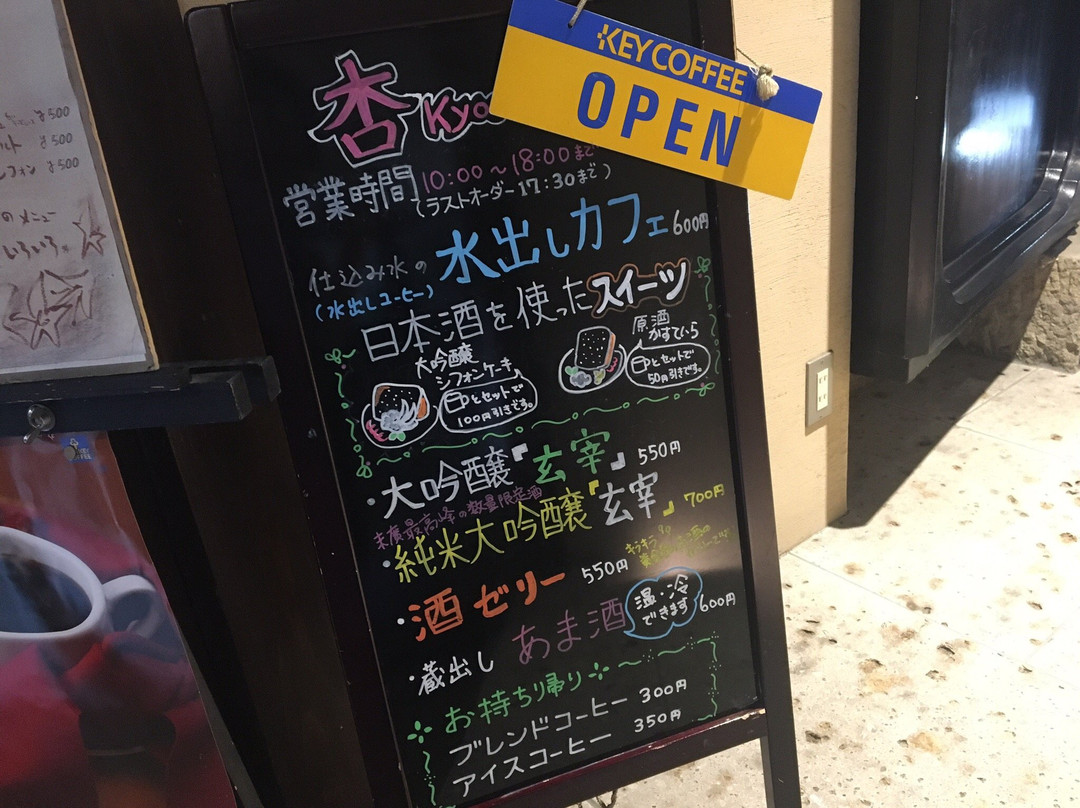 KEY COFFEE
OPEN
杏 Kyo
営業時間 10:00～18:00まで
(ラストオーダー17:30まで)
仕込み水の 水出しカフェ 600円
(水出しコーヒー)
日本酒を使ったスイーツ
大吟醸
シフォンケーキ
とセットで
100円引きです。
原酒
かすてぃら
とセットで
50円引きです。
・大吟醸『玄宰』550円
末廣最高峰の数量限定酒
・純米大吟醸『玄宰』700円
・酒ゼリー 550円
・蔵出し あま酒 600円
温・冷
できます
お持ち帰り
ブレンドコーヒー 300円
アイスコーヒー 350円
¥500
¥500
¥500
のメニュー
いろいろ